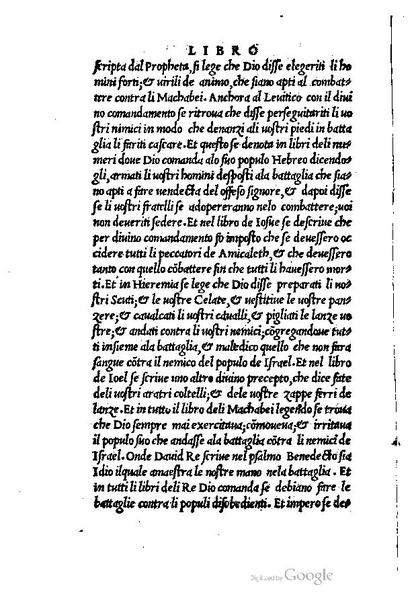 LIBRO
scripta dal Propheta, si lege che Dio disse elegeriti li ho
mini forti; & uirili de animo, che siano apti al combat-
tere contra li Machabei. Anchora al Leuitico con il diui
no comandamento se ritroua che disse perseguitariti li uo
stri nimici in modo che denanzi ali uostri piedi in batta
glia li fariti cascare. Et questo se denota in libri deli nu-
meri doue Dio comanda alo suo populo Hebreo dicendo
gli, armati li uostri homini desposti ala battaglia che sia-
no apti a fare uendecta del offeso signore, & dapoi disse
se li uostri fratelli se adopereranno nelo combattere; uoi
non deueriti sedere. Et nel libro de Iosue se descriue che
per diuino comandamento fo imposto che se deuessero oc
cidere tutti li peccatori de Amicaleth, & che deuessero
tanto con quello cõbattere fin che tutti li hauessero mor-
ti. Et in Hieremia se lege che Dio disse preparati li uo-
stri Scuti; & le uostre Celate, & uestitiue le uostre pan-
zere; & caualcati li uostri caualli, & pigliati le lanze uo
stre; & andati contra li uostri nemici; cõgregandoue tut-
ti insieme ala battaglia, & maledico quello che non fara
sangue cõtra il nemico del populo de Israel. Et nel libro
de Ioel se scriue uno altro diuino precepto, che dice fate
deli uostri aratri coltelli; & dele uostre zappe ferri de
lanze. Et in tutto il libro deli Machabei legendo se troua
che Dio sempre mai exercitaua; cõmoueua; & irritaua
il populo suo che andasse ala battaglia cõtra li nemici de
Israel. Onde Dauid Re scriue nel psalmo Benedecto sia
Idio ilquale amaestra le nostre mano nela battaglia. Et
in tutti li libri deli Re Dio comanda se debiano fare le
battaglie contra li populi disobedienti. Et impero se de-
Digitized by Google